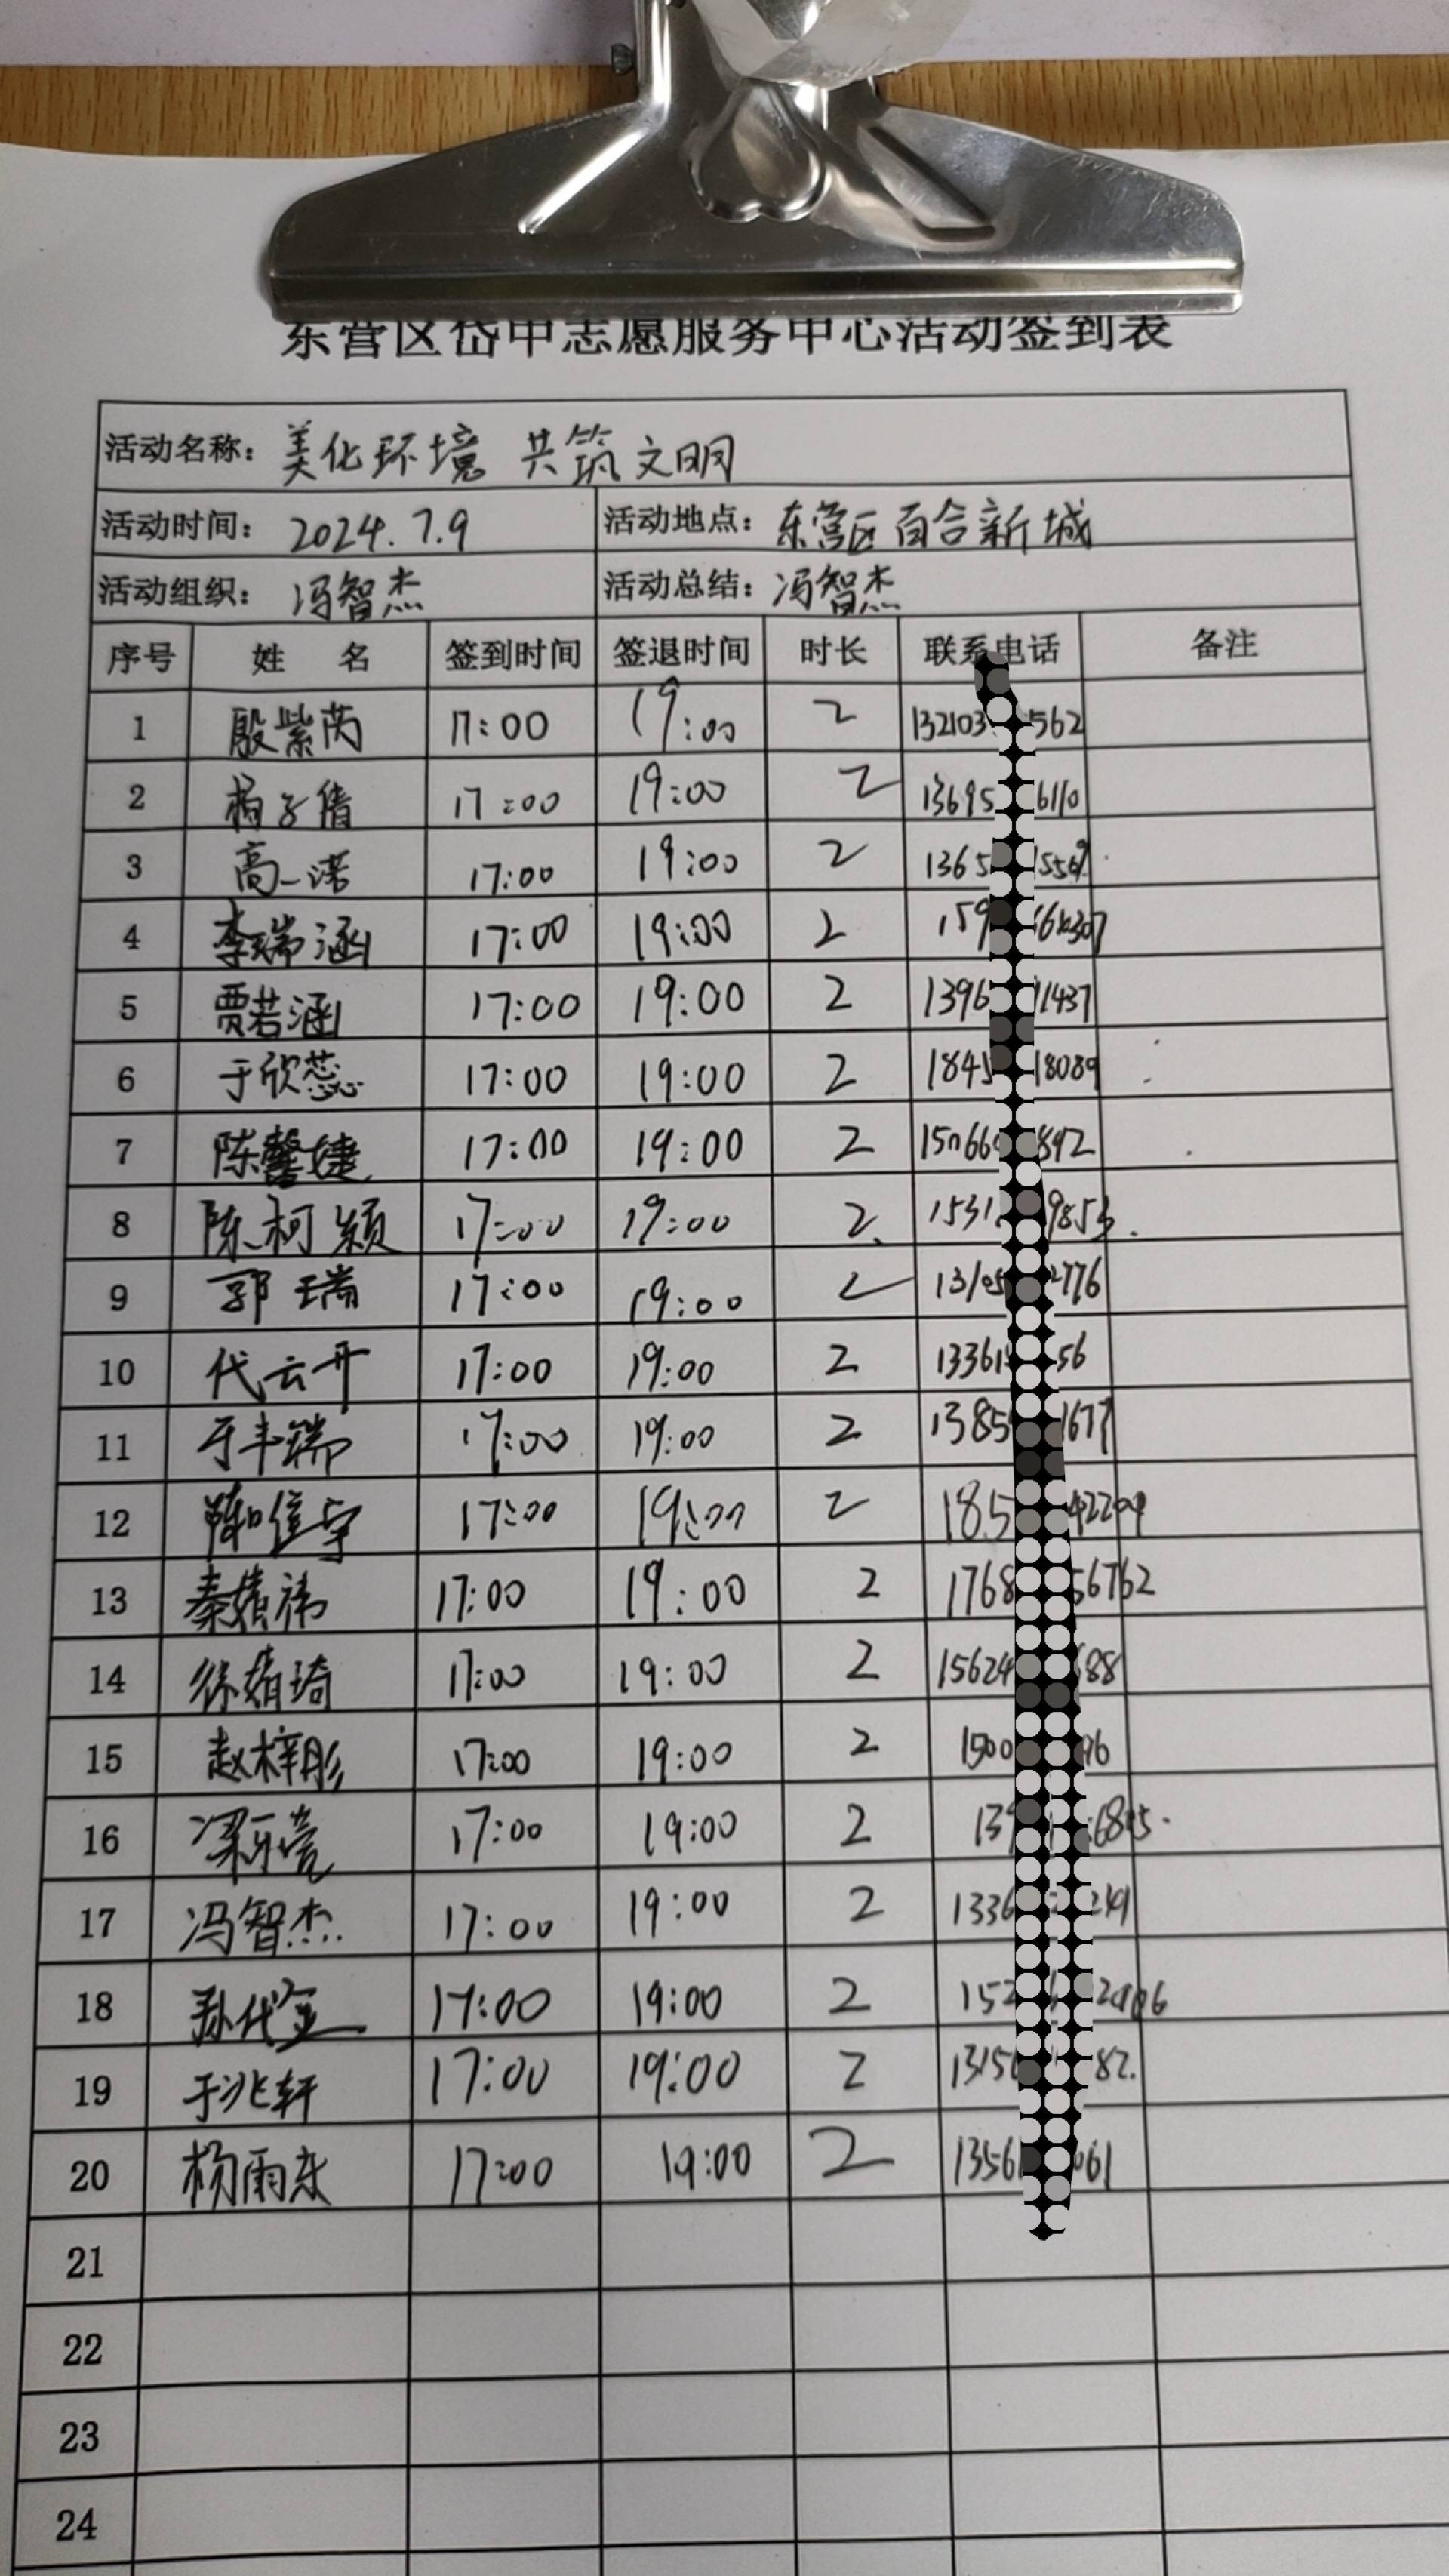 东营区岱中志愿服务中心活动签到表
活动名称：美化环境 共筑文明
活动时间：2024.7.9 活动地点：东营区百合新城
活动组织：冯智杰 活动总结：冯智杰
序号 姓名 签到时间 签退时间 时长 联系电话 备注
1 殷紫芮 17:00 19:00 2 132103 562
2 杨子倩 17:00 19:00 2 13695 6110
3 高一诺 17:00 19:00 2 1365
4 李瑞涵 17:00 19:00 2 159
5 贾若涵 17:00 19:00 2 1396 11437
6 于欣蕊 17:00 19:00 2 1845 18089
7 陈馨婕 17:00 19:00 2 892
8 陈柯颖 17:00 19:00 2 1531 9853
9 郭瑞 17:00 19:00 2 2776
10 代云开 17:00 19:00 2 13361 56
11 于丰瑞 17:00 19:00 2 1385 1677
12 17:00 19:00 2 185 42209
13 秦婧祎 17:00 19:00 2 1768 56762
14 徐婧琦 17:00 19:00 2 15624 688
15 赵梓彤 17:00 19:00 2 1500 96
16 17:00 19:00 2 139
17 冯智杰 17:00 19:00 2 1336
18 孙代金 17:00 19:00 2 152
19 于兆轩 17:00 19:00 2 1315 82
20 杨雨东 17:00 19:00 2 1356 061
21
22
23
24